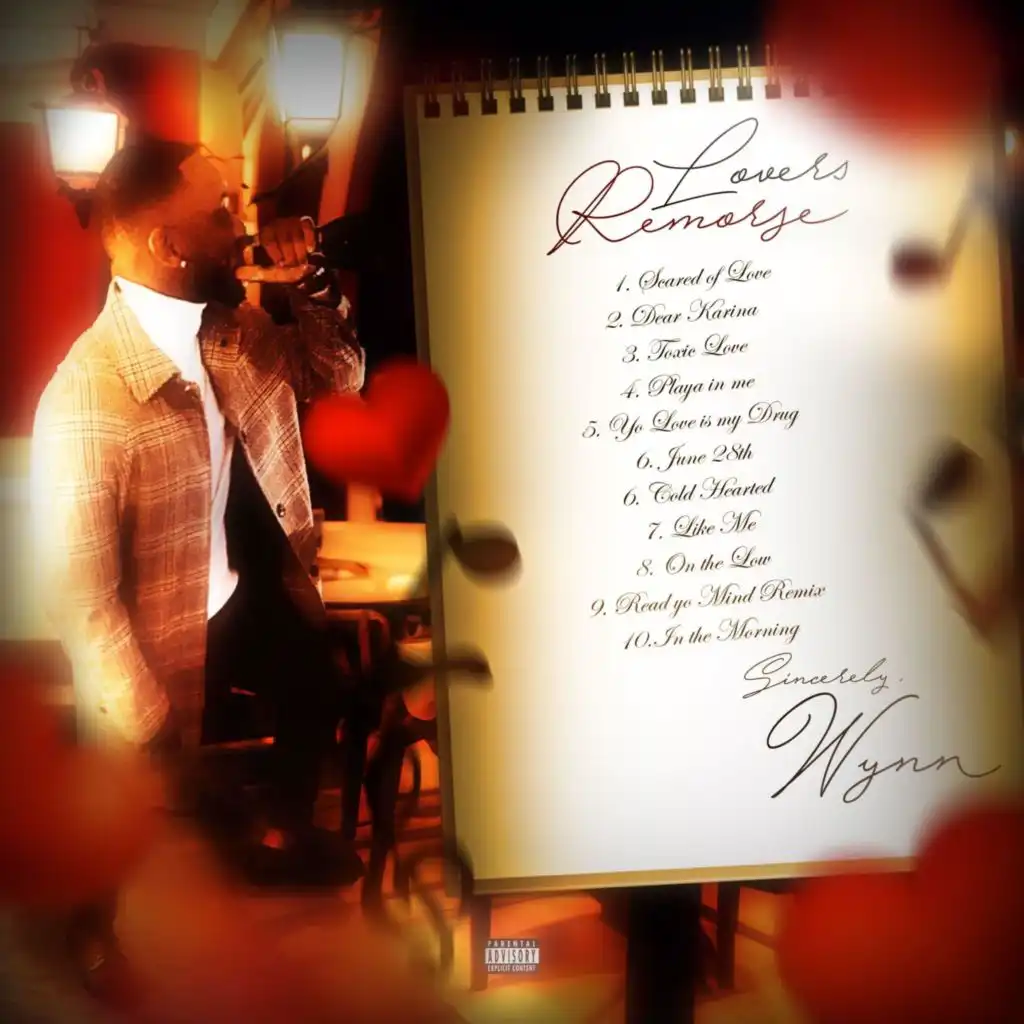 Lovers
Remorse
1. Scared of Love
2. Dear Karina
3. Toxic Love
4. Playa in me
5. Yo Love is my Drug
6. June 28th
6. Cold Hearted
7. Like Me
8. On the Low
9. Read yo Mind Remix
10.In the Morning
Sincerely,
Wynn
PARENTAL
ADVISORY
EXPLICIT CONTENT